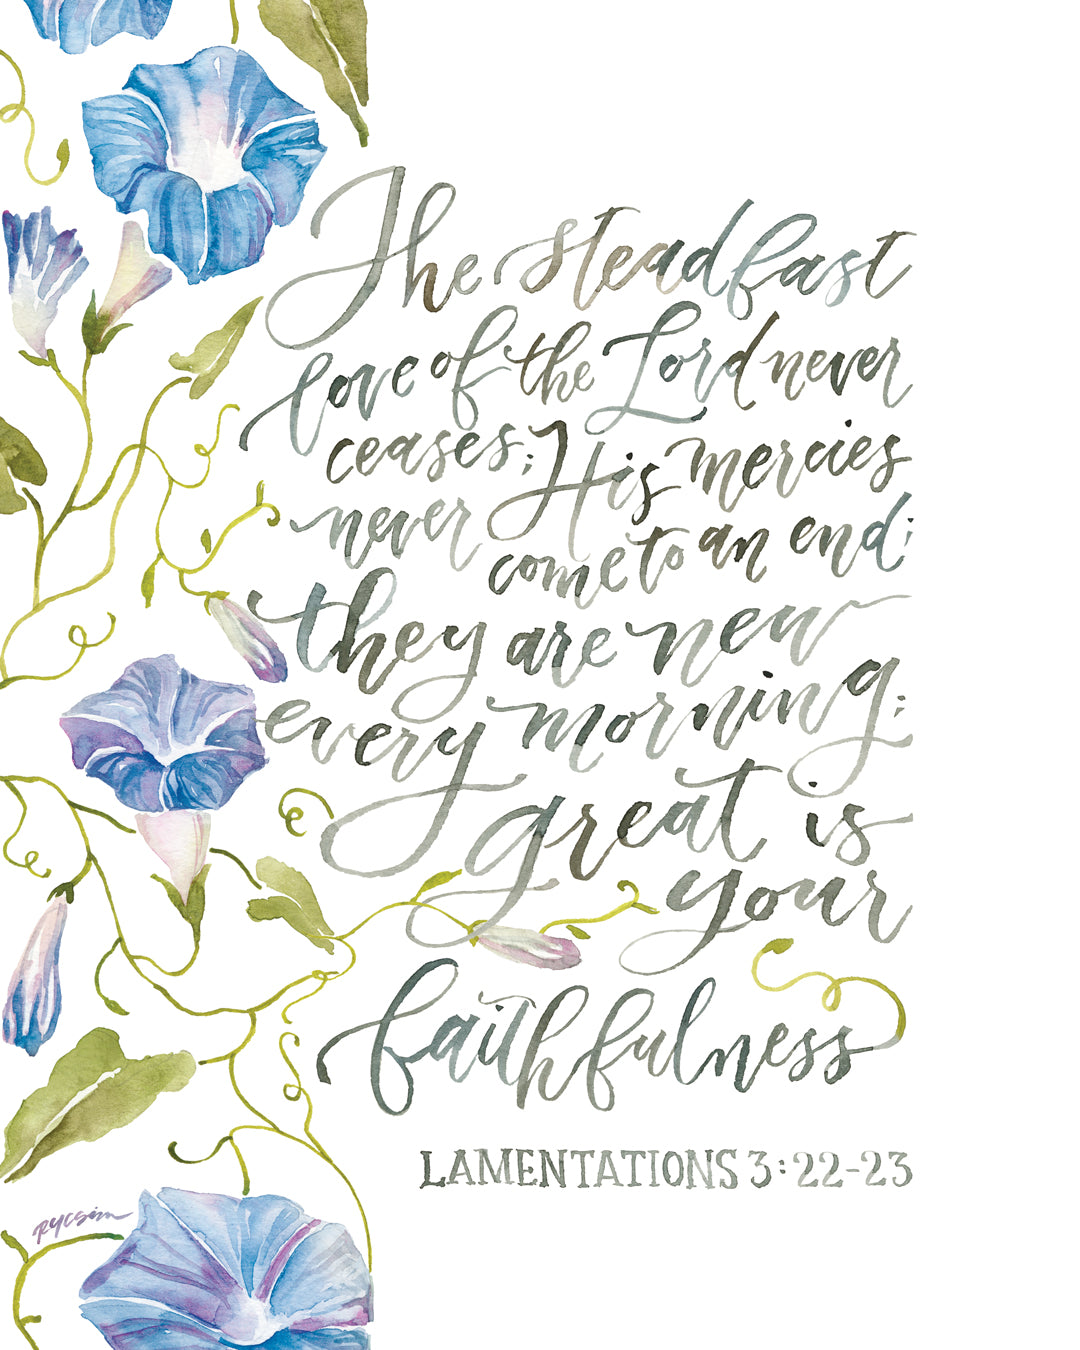 The steadfast
love of the Lord never
ceases; His mercies
never come to an end;
they are new
every morning;
great is
your
faithfulness
LAMENTATIONS 3:22-23